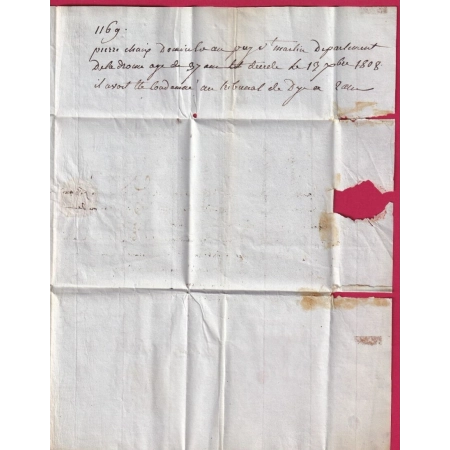 1169.
pierre chaix domicilié au puy st martin departement
de la drome age de 37 ans est décédé le 13 xbre 1808
il avoit été condamné au tribunal de Dye a 2 ans